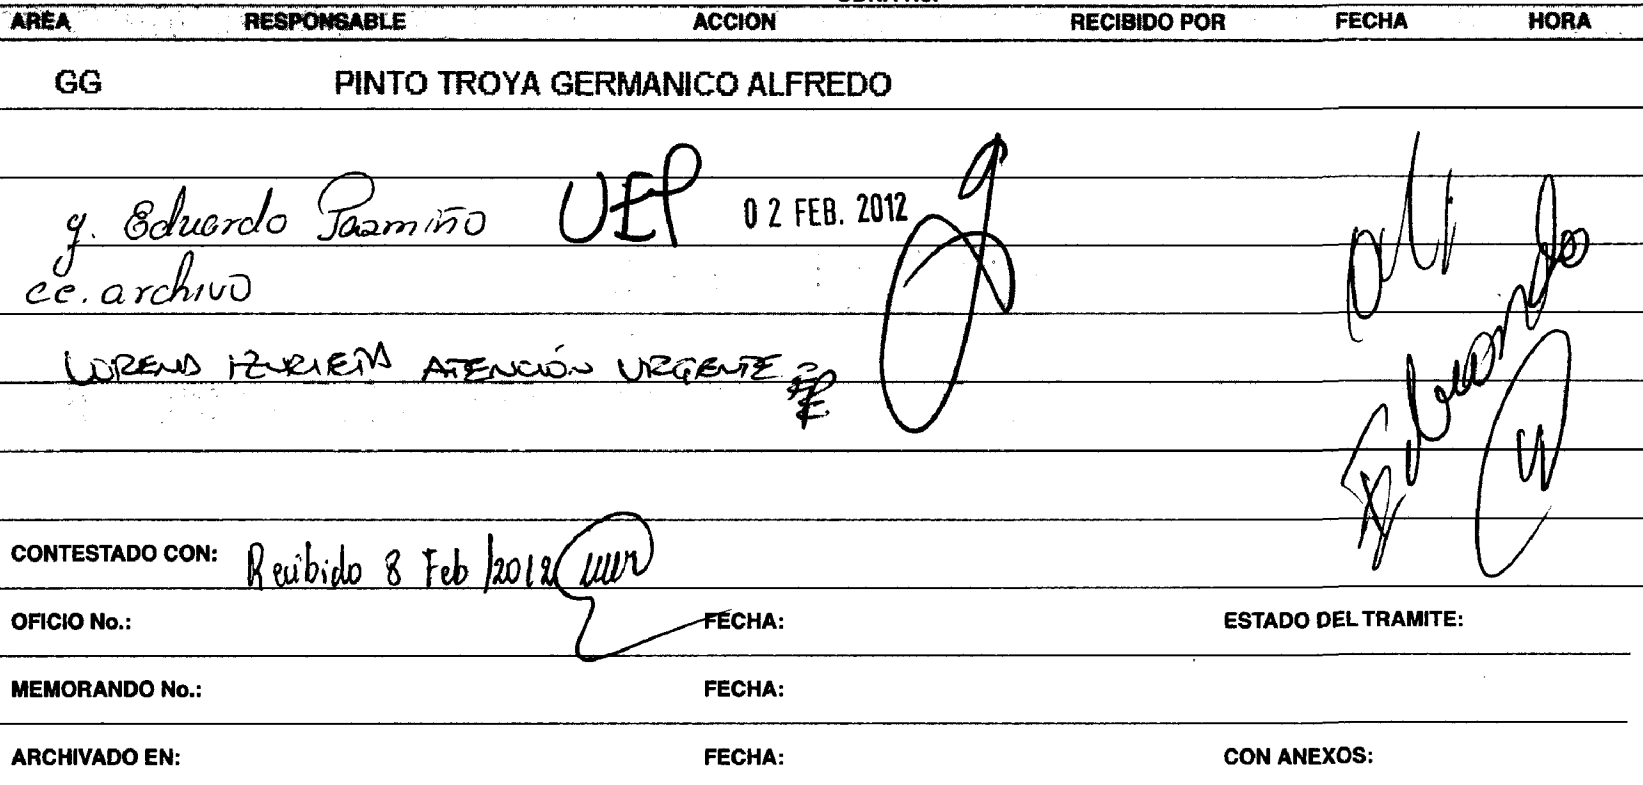 AREA RESPONSABLE ACCION RECIBIDO POR FECHA HORA
GG PINTO TROYA GERMANICO ALFREDO
g. Eduardo Pazmiño UEP 02 FEB. 2012
cc. archivo
LORENA IZURIETA ATENCIÓN URGENTE
CONTESTADO CON: Recibido 8 Feb/2012
OFICIO No.: FECHA: ESTADO DEL TRAMITE:
MEMORANDO No.: FECHA:
ARCHIVADO EN: FECHA: CON ANEXOS: